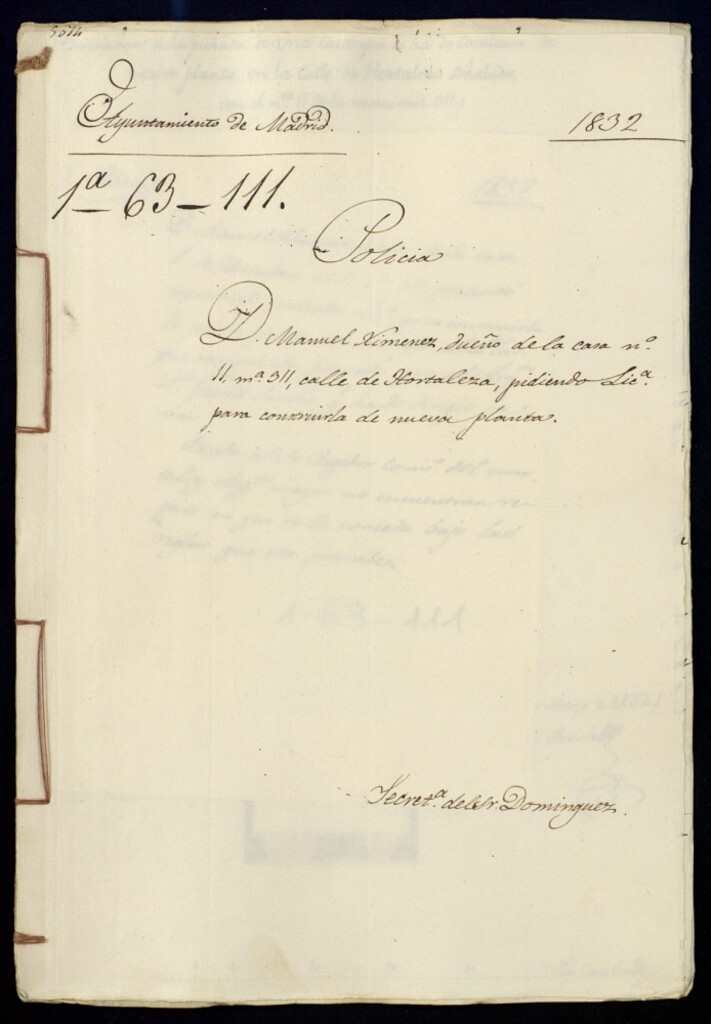 Ayuntamiento de Madrid.
1832
1ª - 63 - 111.
Policia
D. Manuel Ximenez, dueño de la casa nº.
11, mª. 311, calle de Hortaleza, pidiendo Licª.
para construirla de nueva planta.
Secretª. del Sr. Dominguez.